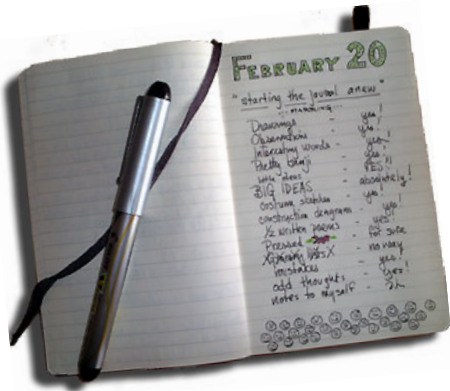 FEBRUARY 20
"starting the journal anew"
Drawings - yes!
Observations - yes!
Interesting words - yes!
Pretty kanji - YES!!
BIG IDEAS - absolutely!
costume sketches - yes!
construction diagrams - yes
1/2 written poems - yes!!
Pressed - for sure
no way
mistakes - yes!
odd thoughts - yes!
notes to myself -